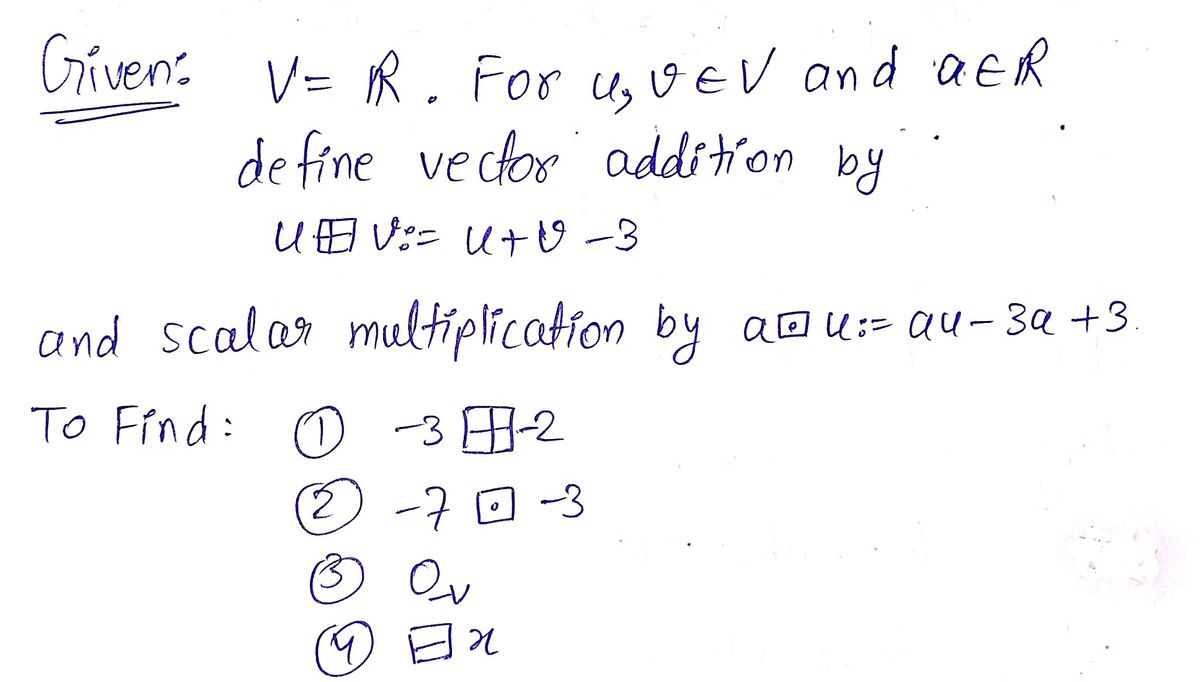 Given: V = ℝ. For u, v ∈ V and a ∈ ℝ
define vector addition by
u ⊞ v := u + v - 3
and scalar multiplication by a ⊡ u := au - 3a + 3.
To Find: ① -3 ⊞ -2
② -7 ⊡ -3
③ 0_V
④ ⊟ x